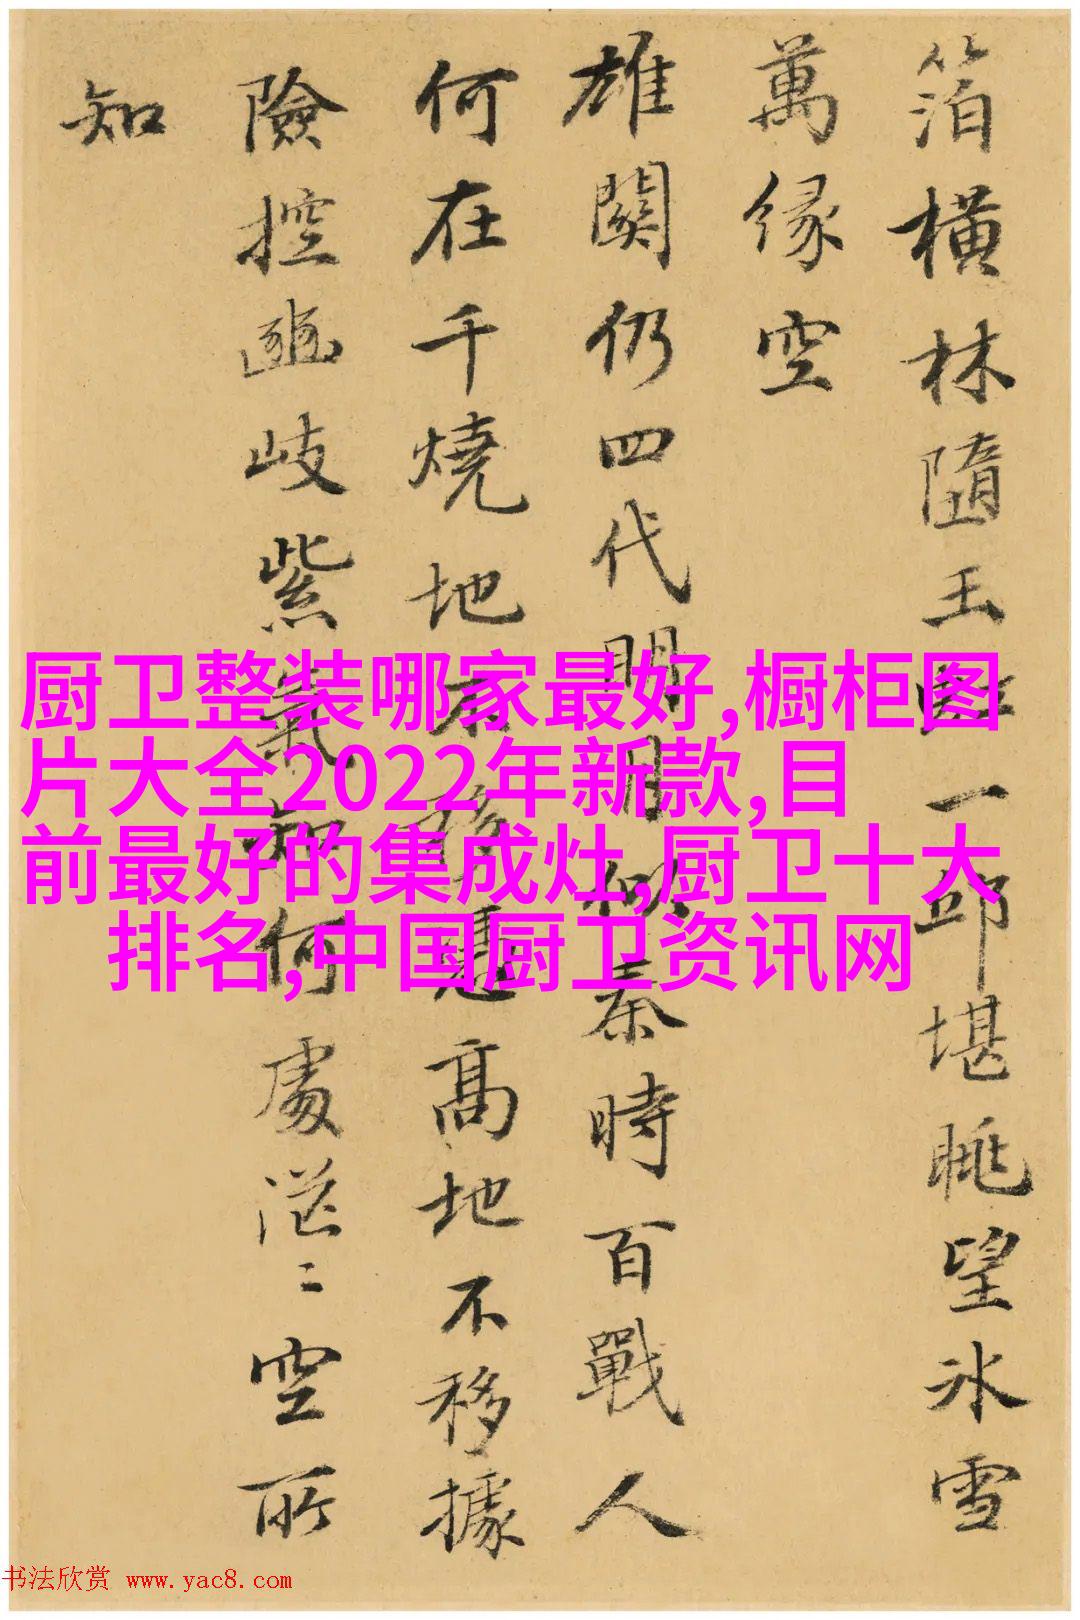 箔橫林隨玉一邱堪眺望冰雪
萬緣空
雄關仍四代關月秦時百戰人
何在千燒地高地不移據
險控豳岐紫氣知何處茫〻空所
知
厨卫整装哪家最好,橱柜图
片大全2022年新款,目
前最好的集成灶,厨卫十大
排名,中国厨卫资讯网
书法欣赏 www.yac8.com